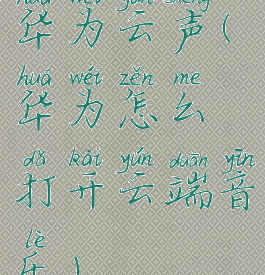 huá wéi yún shēng
华为云声(
huá wéi zěn me
华为怎么
dǎ kāi yún duān yīn
打开云端音
lè
乐)